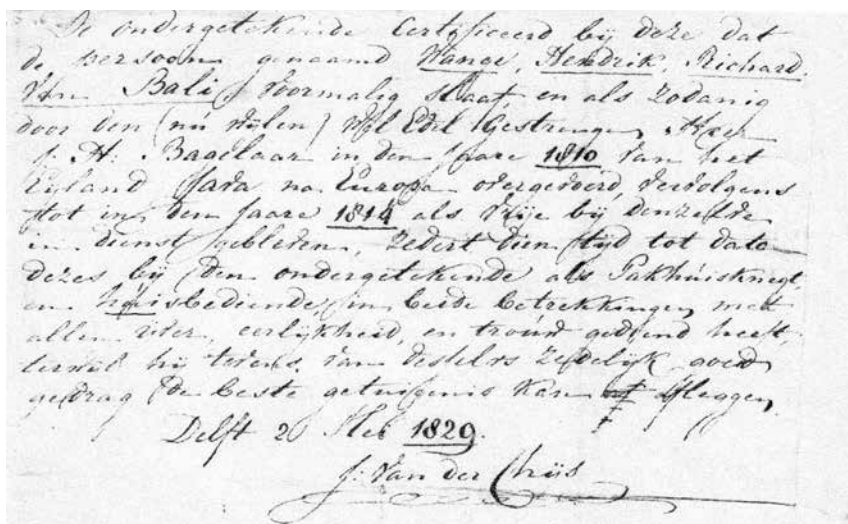 De ondergetekende Certificeerd bij deze dat
de persoon genaamd Wange, Hendrik, Richard
van Bali, voormalig slaaf, en als zodanig
door den (nu wijlen) Wel Edel Gestrengen Heer
J. H. Bagelaar in den Jaare 1810 van het
Eyland Java na Europa overgevoerd, vervolgens
tot in den Jaare 1814 als vrije bij denzelfde
in dienst gebleven, zedert dien tijd tot dato
dezes bij den ondergetekende als Pakhuisknegt
en huisbediende, in beide betrekkingen met
allen ijver, eerlijkheid, en trouw gediend heeft,
terwijl hij tevens van deszelvs zedelijk goed
gedrag de beste getuigenis kan afleggen
Delft 20 Feb 1829.
J. van der Chijs